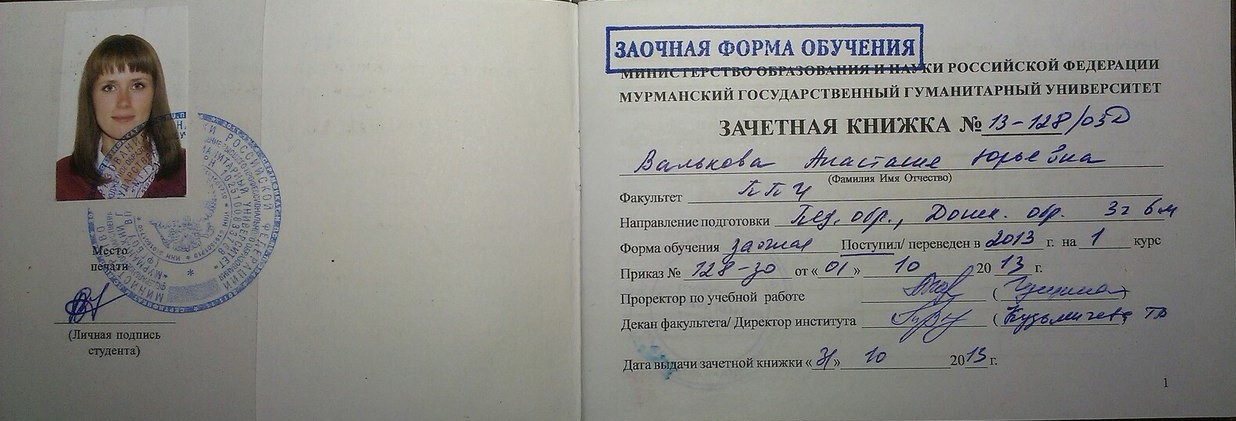 Место
печати
(Личная подпись
студента)
ЗАОЧНАЯ ФОРМА ОБУЧЕНИЯ
МИНИСТЕРСТВО ОБРАЗОВАНИЯ И НАУКИ РОССИЙСКОЙ ФЕДЕРАЦИИ
МУРМАНСКИЙ ГОСУДАРСТВЕННЫЙ ГУМАНИТАРНЫЙ УНИВЕРСИТЕТ
ЗАЧЕТНАЯ КНИЖКА № 13-128/03Д
Валькова Анастасие Юрьевна
(Фамилия Имя Отчество)
Факультет ППИ
Направление подготовки Пед. обр., Дошк. обр. 3г 6м
Форма обучения заочная Поступил/ переведен в 2013 г. на 1 курс
Приказ № 128-зо от « 01 » 10 2013 г.
Проректор по учебной работе
Декан факультета/ Директор института (Кузьмичева ТВ
Дата выдачи зачетной книжки « 31 » 10 2013 г.
1